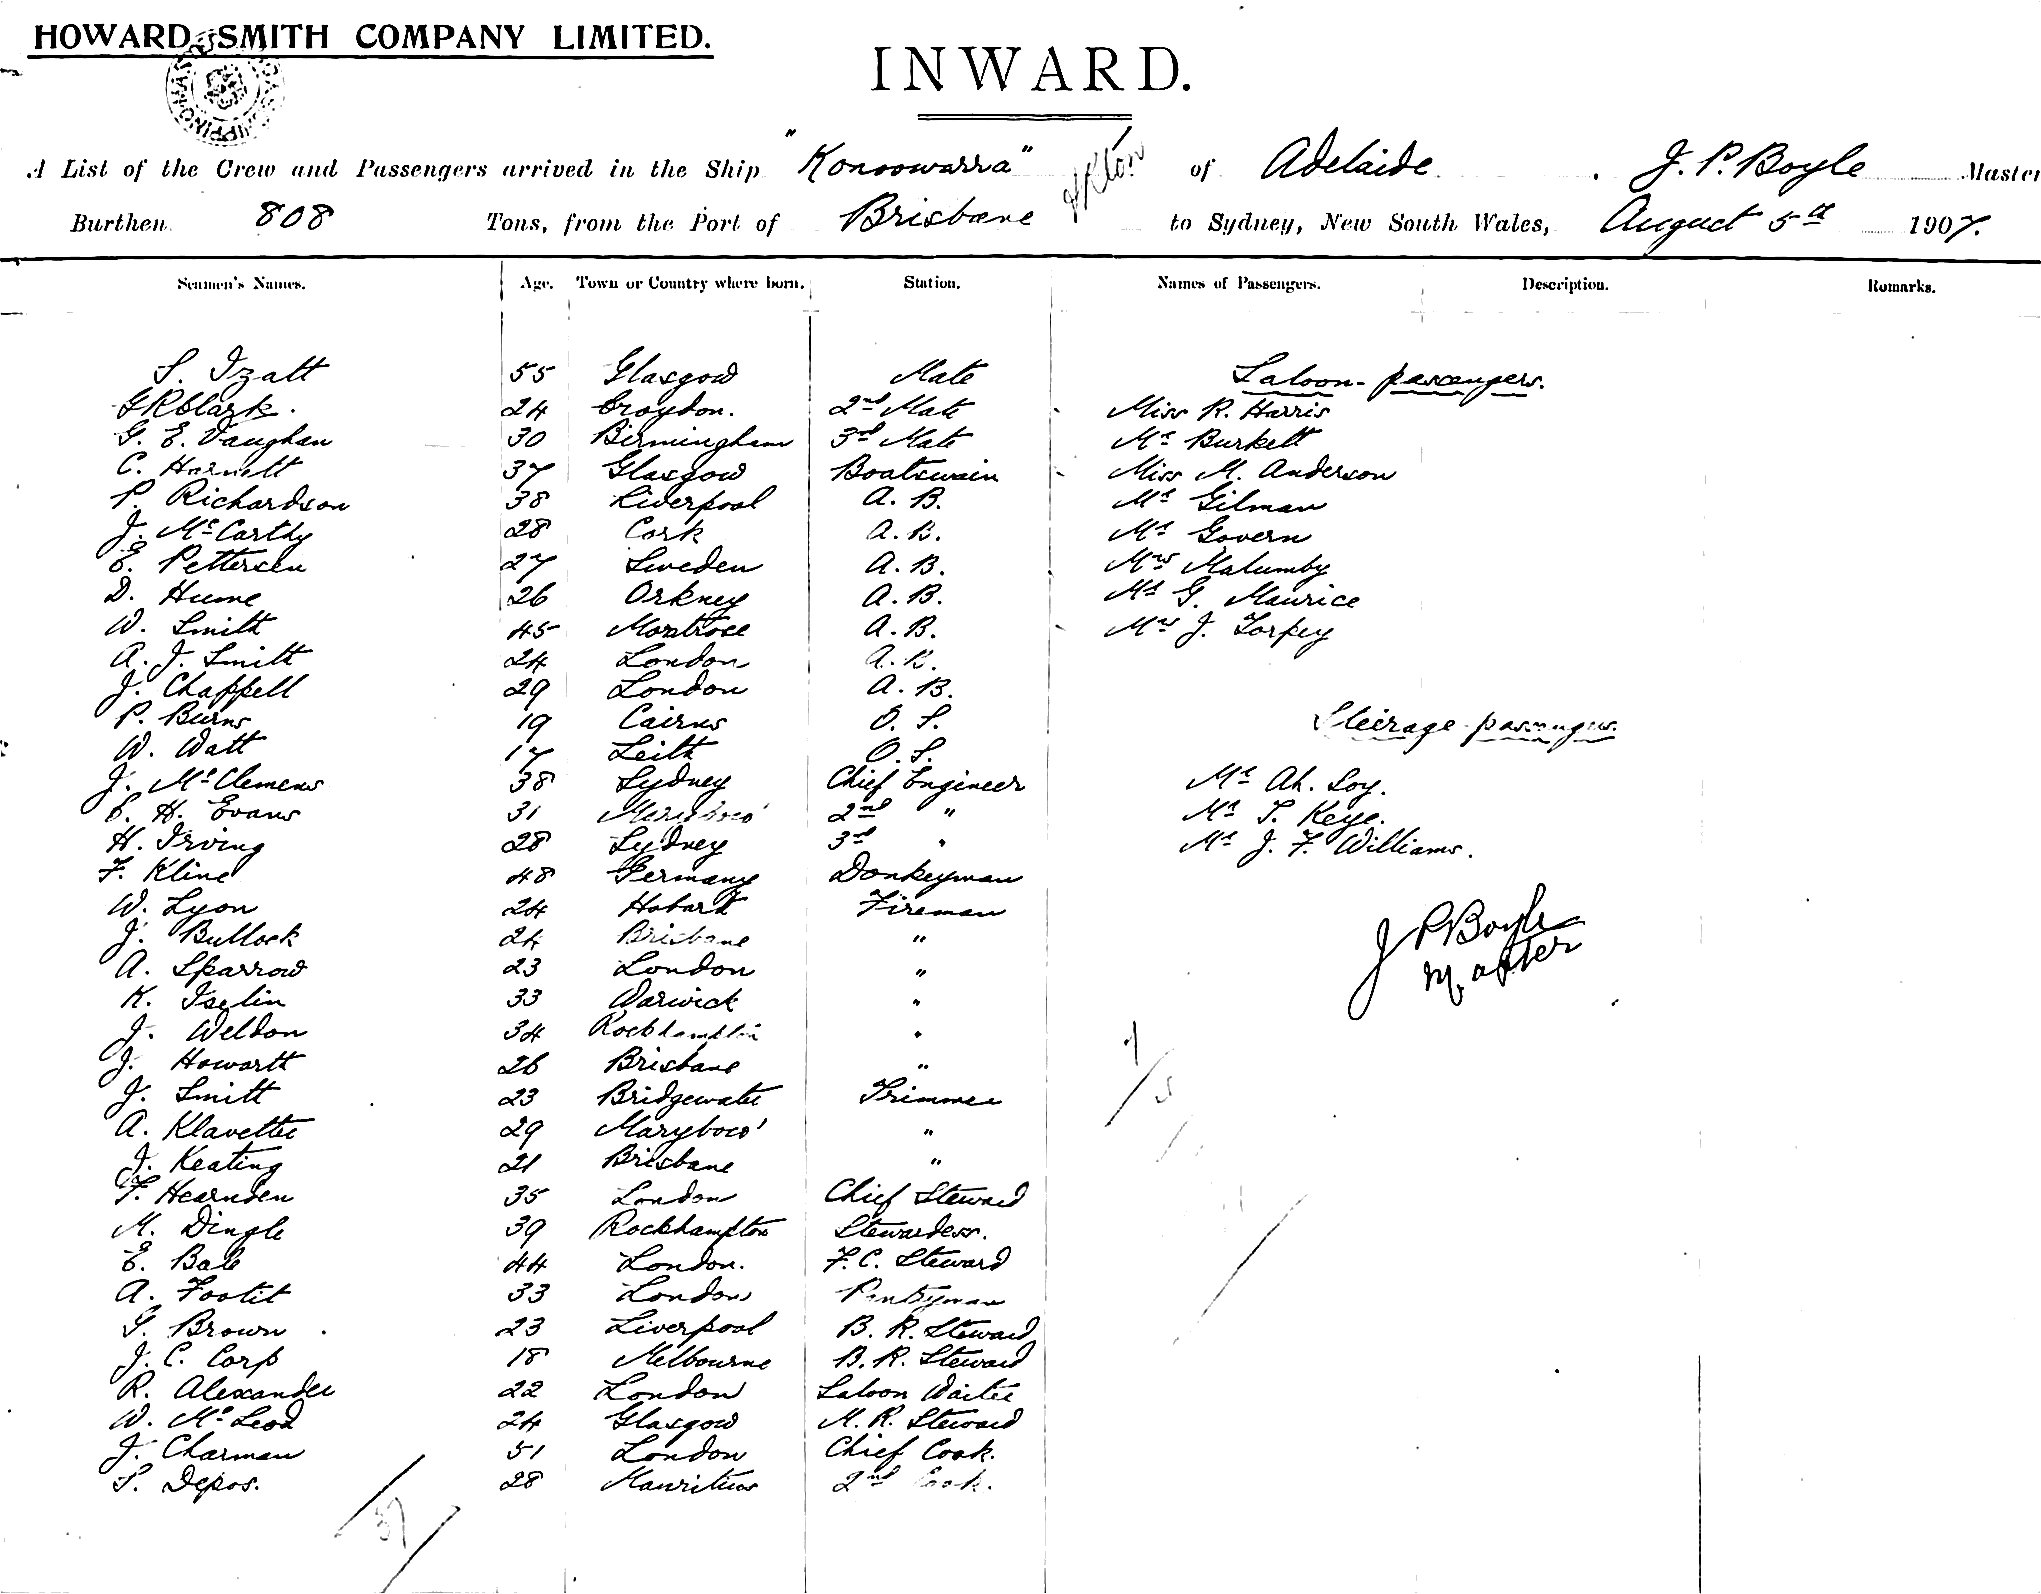 HOWARD SMITH COMPANY LIMITED.
INWARD.
A List of the Crew and Passengers arrived in the Ship "Konoowarra" of Adelaide. J. P. Boyle Master
Burthen 808 Tons, from the Port of Brisbane to Sydney, New South Wales, August 5th 1907.
Seamen's Names. Age. Town or Country where born. Station. Names of Passengers. Description. Remarks.
S. Izatt 55 Glasgow Mate Saloon-passengers.
G R Clark. 24 Croydon. 2nd Mate Miss R. Harris
G. E. Vaughan 30 Birmingham 3rd Mate Mr Burkett
C. Harnett 37 Glasgow Boatswain Miss M. Anderson
P. Richardson 38 Liverpool A. B. Mr Gilman
J. McCarthy 28 Cork A. B. Mr Govern
E. Pettersen 27 Sweden A. B. Mrs Malumby
D. Hume 26 Orkney A. B. Mr G. Maurice
W. Smith 45 Montrose A. B. Mrs J. Torpey
A. J. Smith 24 London A. B.
J. Chappell 29 London A. B.
P. Burns 19 Cairns O. S. Steerage-passengers.
W. Watt 17 Leith O. S.
J. McClemens 38 Sydney Chief Engineer Mr Ah. Loy.
E. H. Evans 31 Maryboro' 2nd " Mr T. Keye.
H. Irving 28 Sydney 3rd " Mr J. F. Williams.
F. Kline 48 Germany Donkeyman
W. Lyon 24 Hobart Fireman
J. Bullock 24 Brisbane " J P Boyle
A. Sparrow 23 London " Master
K. Iselin 33 Warwick "
J. Weldon 34 Rockhampton "
J. Howarth 26 Brisbane "
J. Smith 23 Bridgewater Trimmer
A. Klavette 29 Maryboro' "
J. Keating 21 Brisbane "
F. Hearnden 35 London Chief Steward
M. Dingle 39 Rockhampton Stewardess.
E. Bale 44 London. F. C. Steward
A. Footit 33 London Pantryman
G. Brown 23 Liverpool B. R. Steward
J. C. Corp 18 Melbourne B. R. Steward
R. Alexander 22 London Saloon Waiter
W. McLeod 24 Glasgow M. R. Steward
J. Charman 51 London Chief Cook.
S. Depos. 28 Mauritius 2nd Cook.